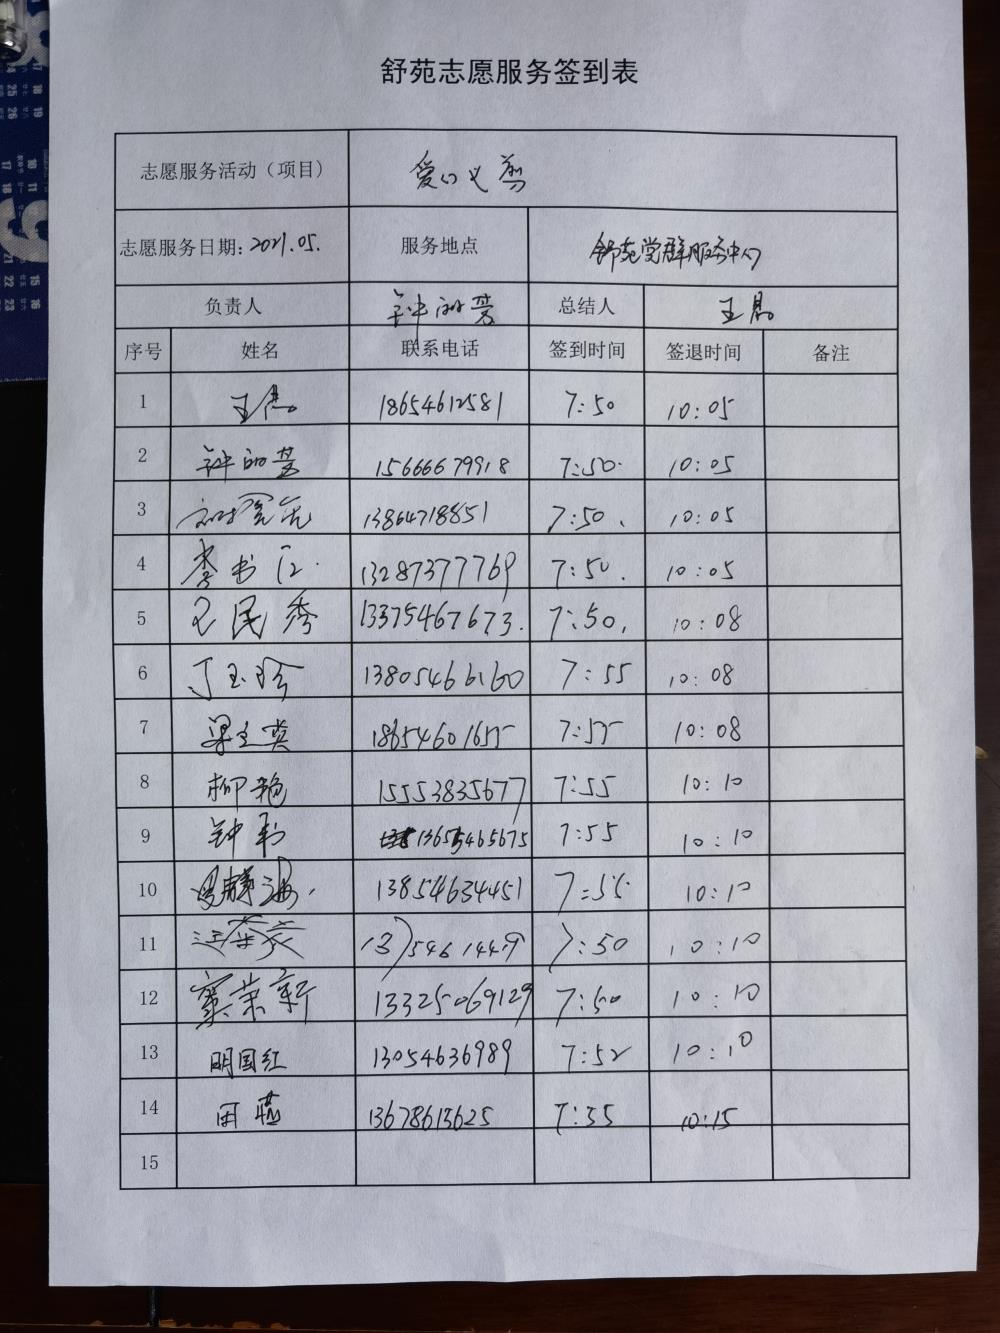 舒苑志愿服务签到表
志愿服务活动（项目） 爱心义剪
志愿服务日期：2021.05. 服务地点 舒苑党群服务中心
负责人 钟 总结人 王
序号 姓名 联系电话 签到时间 签退时间 备注
1 王 18654612581 7:50 10:05
2 钟 15666679918 7:50. 10:05
3 13864718851 7:50. 10:05
4 李书 13287377769 7:50. 10:05
5 民秀 13375467673. 7:50. 10:08
6 丁玉珍 13805466160 7:55 10:08
7 梁 英 18654601655 7:55 10:08
8 柳艳 15553835677 7:55 10:10
9 钟 13655465675 7:55 10:10
10 13854634451 7:55 10:10
11 7:50 10:10
12 窦荣新 13325069129 7:50 10:10
13 明国红 13054636989 7:52 10:10
14 田 13678613625 7:55 10:15
15